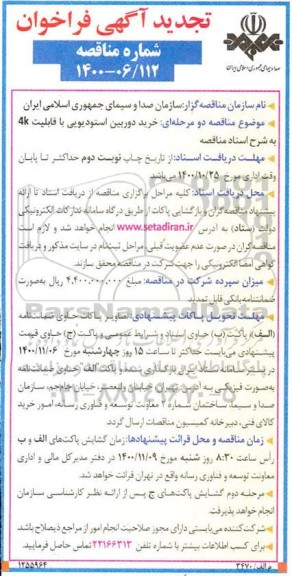 تجدید آگهی فراخوان
شماره مناقصه
۱۴۰۰-۰۶/۱۱۲
صدا و سیمای جمهوری اسلامی ایران
نام سازمان مناقصه گزار:سازمان صدا و سیمای جمهوری اسلامی ایران
موضوع مناقصه دو مرحله‌ای: خرید دوربین استودیویی با قابلیت 4k
به شرح اسناد مناقصه
مهلت دریافت اسناد: از تاریخ چاپ نوبت دوم حداکثر تا پایان
وقت اداری مورخ ۱۴۰۰/۱۰/۲۵ می‌باشد
محل دریافت اسناد: کلیه مراحل برگزاری مناقصه از دریافت اسناد تا ارائه
پیشنهاد مناقصه‌گران و بازگشایی پاکات از طریق درگاه سامانه تدارکات الکترونیکی
دولت (ستاد) به آدرس www.setadiran.ir انجام خواهد شد و لازم است
مناقصه‌گران در صورت عدم عضویت قبلی، مراحل ثبت‌نام در سایت مذکور و دریافت
گواهی امضا الکترونیکی را جهت شرکت در مناقصه محقق سازند.
میزان سپرده شرکت در مناقصه: مبلغ ۴.۴۰۰.۰۰۰.۰۰۰ ریال به‌صورت
ضمانتنامه بانکی قابل تمدید
مهلت تحویل پاکات پیشنهادی: تصاویر پاکات حاوی ضمانت‌نامه
(الف)، پاکت (ب) حاوی اسناد و شرایط عمومی و پاکت (ج) حاوی قیمت
پیشنهادی می‌بایست حداکثر تا ساعت ۱۵ روز چهارشنبه مورخ ۱۴۰۰/۱۱/۰۶
در سامانه
به‌صورت فیزیکی به آدرس تهران، خیابان ولیعصر، خیابان جام‌جم، سازمان
صدا و سیما، ساختمان شماره ۲ معاونت توسعه و فناوری رسانه، امور خرید
کالای فنی، دبیرخانه کمیسیون مناقصات ارسال گردد.
زمان مناقصه و محل قرائت پیشنهادها: زمان گشایش پاکت‌های الف و ب
رأس ساعت ۸:۳۰ روز شنبه مورخ ۱۴۰۰/۱۱/۰۹ در دفتر مدیرکل مالی و اداری
معاونت توسعه و فناوری رسانه واقع در تهران قرائت خواهد شد.
مرحله دوم گشایش پاکت‌های ج پس از ارائه نظر کارشناسی سازمان
انجام خواهد پذیرفت.
شرکت‌کننده می‌بایستی دارای مجوز صلاحیت انجام امور از مراجع ذیصلاح باشد
برای کسب اطلاعات بیشتر با شماره تلفن ۲۲۱۶۶۳۱۳ تماس حاصل فرمایید.
۱۲۵۵۹۶۴
م الف/ ۳۴۷۰